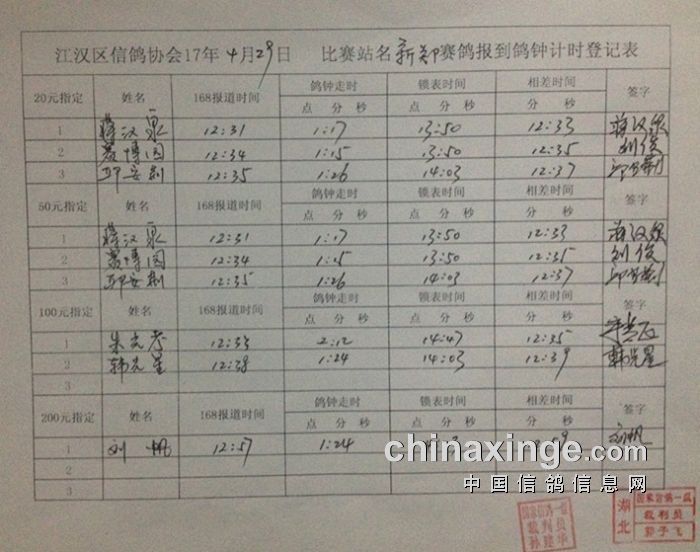 江汉区信鸽协会17年 4月29日 比赛站名 新郑 赛鸽报到鸽钟计时登记表
20元指定 姓名 168报道时间 鸽钟走时 锁表时间 相差时间 签字
点 分 秒 点 分 秒 分 秒
1 蒋汉泉 12:31 1:17 13:50 12:33 蒋汉泉
2 博园 12:34 1:15 13:50 12:35 刘俊
3 邱安 12:35 1:26 14:03 12:37 邱
50元指定 姓名 168报道时间 鸽钟走时 锁表时间 相差时间 签字
点 分 秒 点 分 秒 分 秒
1 蒋汉泉 12:31 1:17 13:50 12:33 蒋汉泉
2 博园 12:34 1:15 13:50 12:35 刘俊
3 邱安 12:35 1:26 14:03 12:37 邱
100元指定 姓名 168报道时间 鸽钟走时 锁表时间 相差时间 签字
点 分 秒 点 分 秒 分 秒
1 朱 12:33 2:12 14:47 12:35
2 韩先星 12:38 1:24 14:03 12:39 韩先星
3
200元指定 姓名 168报道时间 鸽钟走时 锁表时间 相差时间 签字
点 分 秒 点 分 秒 分 秒
1 刘帆 12:57 1:24 刘帆
2
3
chinaxinge.com
中国信鸽信息网
国家信鸽一级
裁判员
孙建华
湖北
国家信鸽一级
裁判员
郭子飞